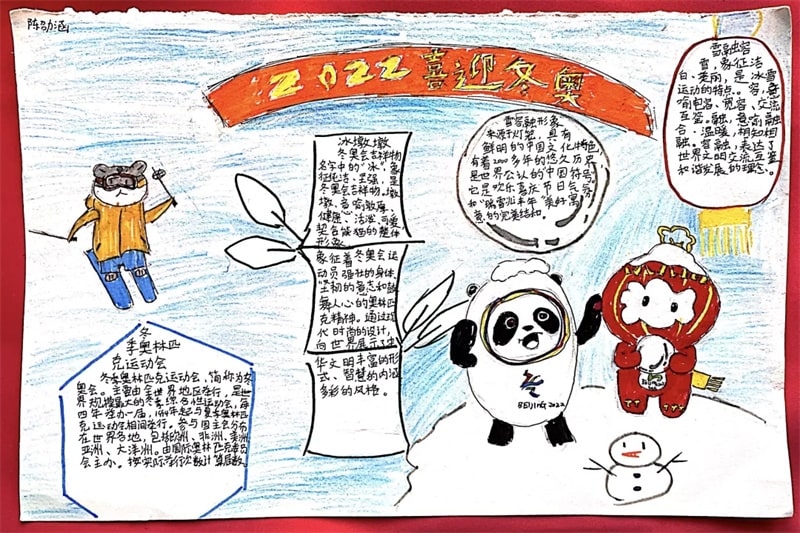 陈劭涵
2022喜迎冬奥
冰墩墩
冬奥会吉祥物
名字中的“冰”，象
征纯洁、坚强，是
冬奥会吉祥物。墩
墩，意喻敦厚、
健康、活泼、可爱，
契合熊猫的整体
形象
象征着冬奥会运
动员强壮的身体，
坚韧的意志和鼓
舞人心的奥林匹
克精神。通过现
代时尚的设计，
向世界展示了中
华文明丰富的形
式、智慧的内涵
多彩的风格。
雪容融形象
来源于灯笼，具有
鲜明的中国文化特色
有着2000多年的悠久历史
是世界公认的中国符号
它是欢乐喜庆节日气氛
和“瑞雪兆丰年”美好寓
意的完美结合。
雪融容
雪，象征洁
白、美丽，是冰雪
运动的特点。容，意
喻包容、宽容、交流
互鉴。融，意喻融
合、温暖，相知相
融。容融，表达了
世界文明交流互鉴
和谐发展的理念。
冬
季奥林匹
克运动会
冬季奥林匹克运动会，简称为冬
奥会。主要由全世界地区举行，是世
界规模最大的冬季综合性运动会，每
四年举办一届，1994年起与夏季奥林匹
克运动会相间举行。参与国主会分布
在世界各地，包括欧洲、非洲、美洲
亚洲、大洋洲。由国际奥林匹克委员
会主办。按实际举行次数计算届数
BEIJING 2022